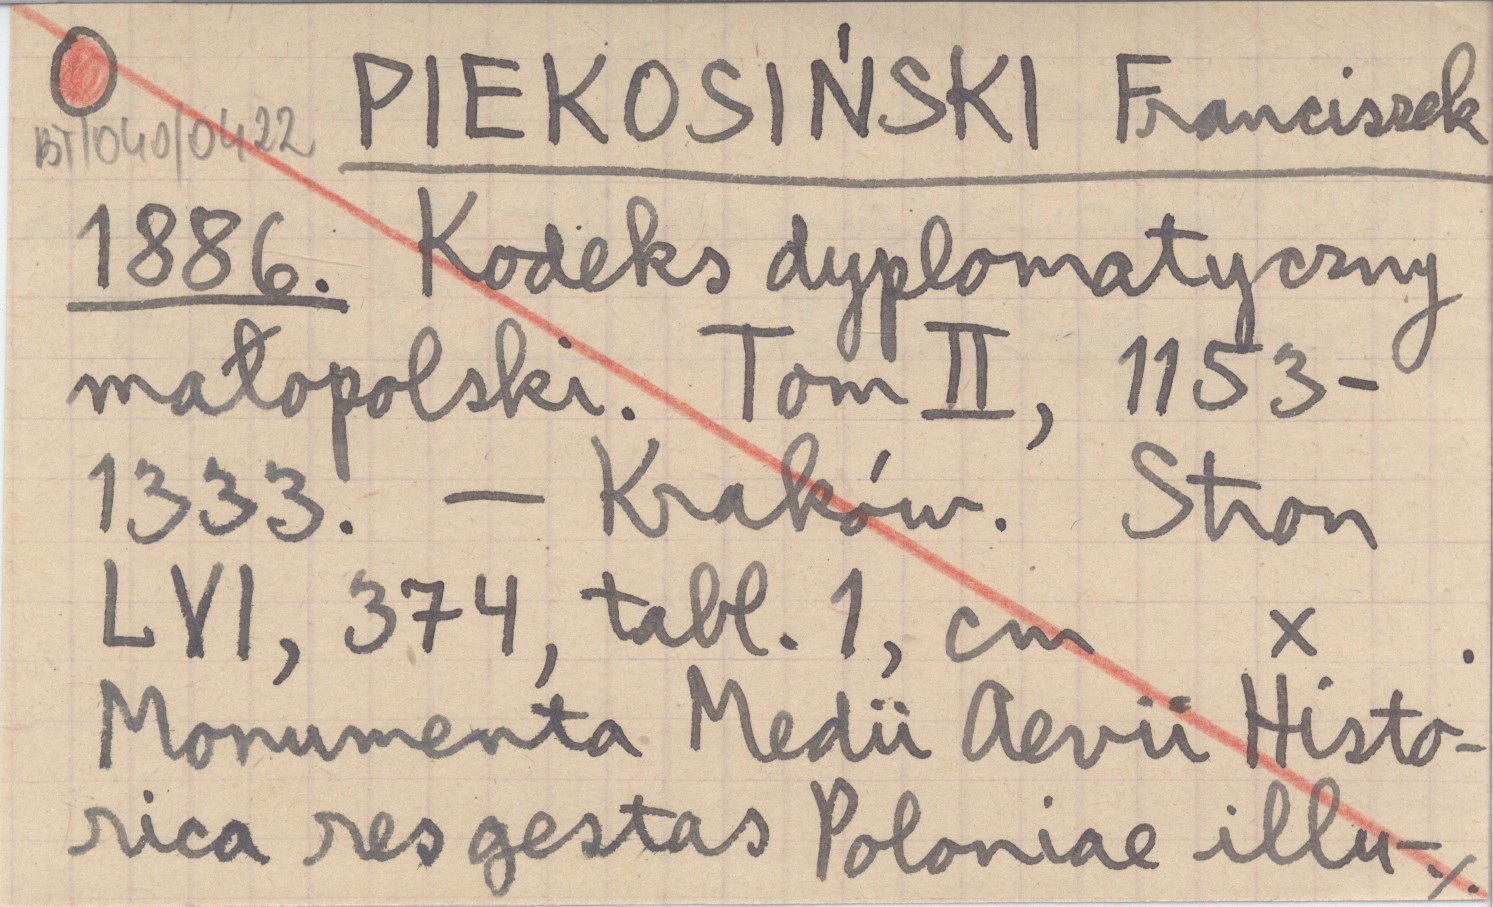 PIEKOSIŃSKI Franciszek
BT/040/0422
1886. Kodeks dyplomatyczny
małopolski. Tom II, 1153-
1333. — Kraków. Stron
LVI, 374, tabl. 1, cm x .
Monumenta Medii Aevii Histo-
rica res gestas Poloniae illu-./.